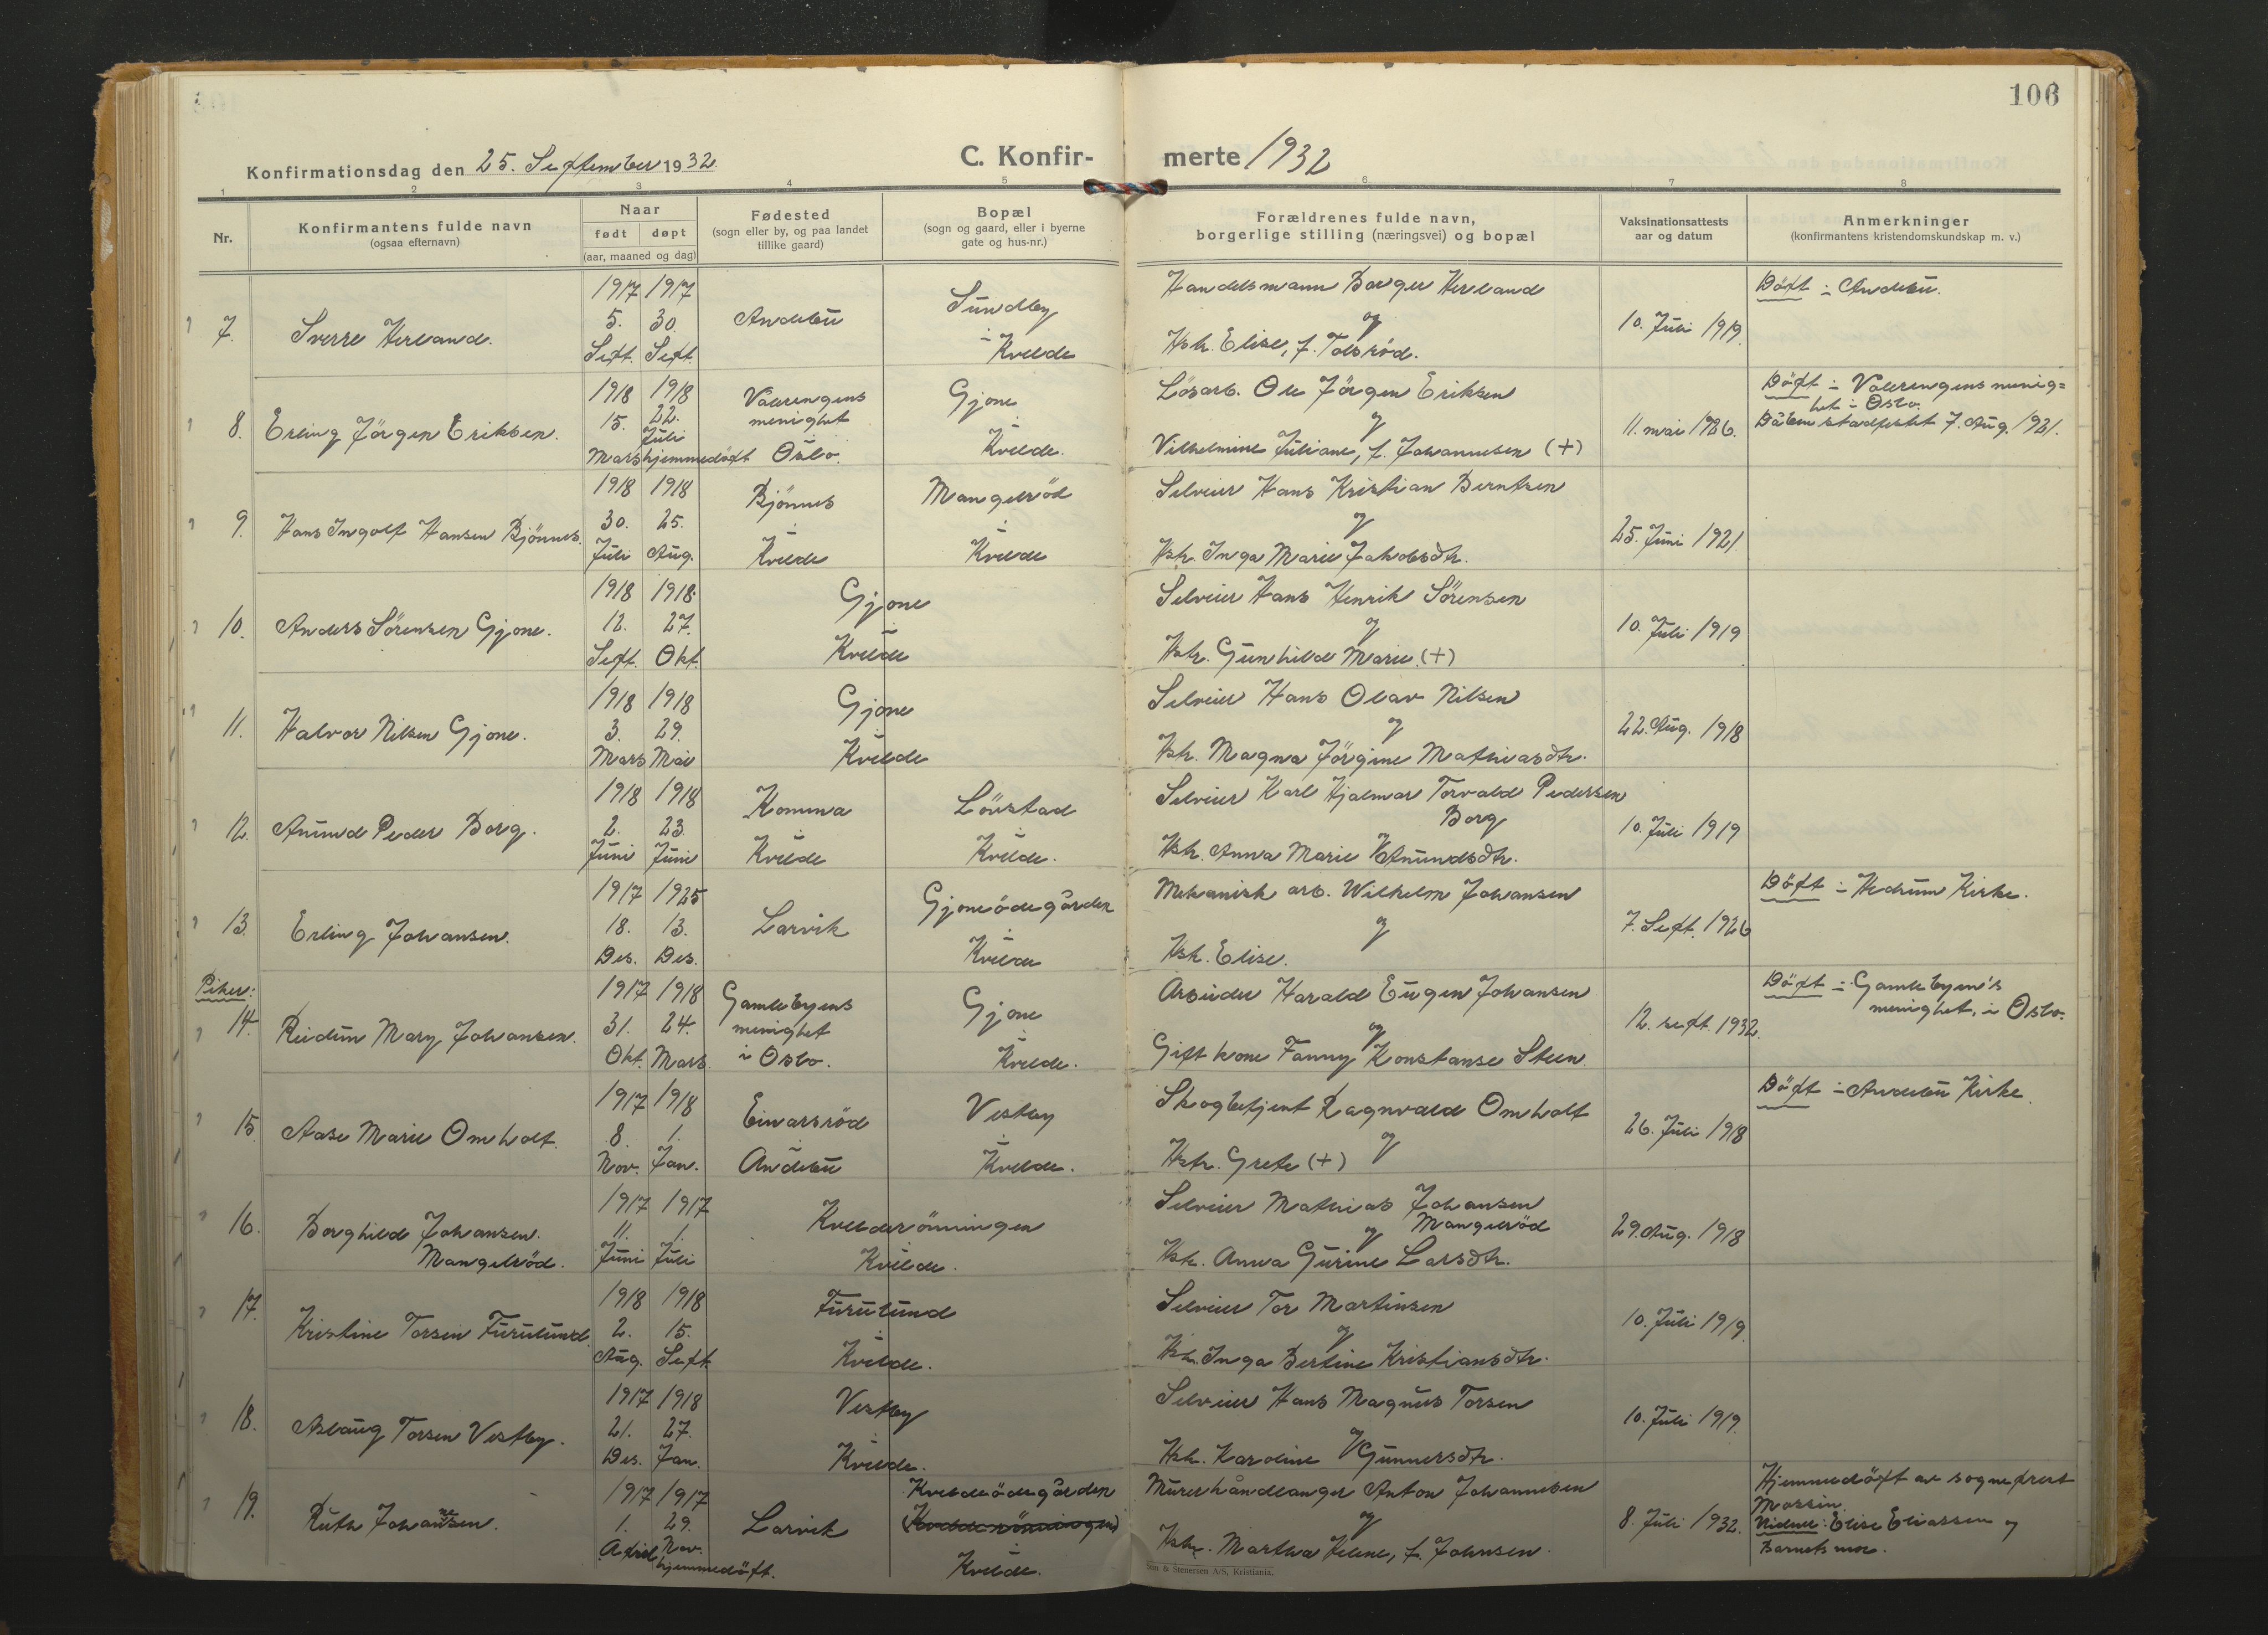 106
Konfirmationsdag den 25. September 1932.
C. Konfir- merte 1932
1 2 3 4 5 6 7 8
Nr.
Konfirmantens fulde navn
(ogsaa efternavn)
Naar
født døpt
(aar, maaned og dag)
Fødested
(sogn eller by, og paa landet
tillike gaard)
Bopæl
(sogn og gaard, eller i byerne
gate og hus-nr.)
Forældrenes fulde navn,
borgerlige stilling (næringsvei) og bopæl
Vaksinationsattests
aar og datum
Anmerkninger
(konfirmantens kristendomskundskap m. v.)
7. Sverre Herland.
1917 1917
5. 30.
Sept. Sept.
Andebu
Sundby
i Kvelde
Handelsmann Borger Herland
og
Hstr. Elise, f. Tolsröd.
10. Juli 1919.
Döpt i Andebu.
8. Erling Jörgen Eriksen.
1918 1918
15. 22.
Juli
Mars hjemmedöpt
Valerengens
menighet
Oslo.
Gjone
i
Kvelde.
Lösarb. Ole Jörgen Eriksen
og
Vilhelmine Juliane, f. Johannesen (+)
11. mai 1926.
Döpt i Valerengens menig=
het i Oslo.
Dåben stadfestet 7. Aug. 1921.
9. Hans Ingolf Hansen Bjönnes.
1918 1918
30. 25.
Juli Aug.
Bjönnes
i
Kvelde
Mangelröd
i
Kvelde
Selveier Hans Kristian Berntsen
og
Hstr. Inga Marie Jakobsdtr.
25. Juni 1921.
10. Anders Sörensen Gjone.
1918 1918.
12. 27.
Sept. Okt.
Gjone
i
Kvelde
Selveier Hans Henrik Sörensen
og
Hstr. Gunhild Marie. (+)
10. Juli 1919
11. Halvor Nilsen Gjone.
1918 1918
3. 29.
Mars Mai
Gjone
i
Kvelde
Selveier Hans Olav Nilsen
og
Hstr. Magna Jörgine Mathiasdtr.
22. Aug. 1918
12. Anund Peder Borg.
1918 1918
2. 23.
Juni Juni
Komma
i
Kvelde
Lövstad
i
Kvelde.
Selveier Karl Hjalmar Torvald Pedersen
Borg
Hstr. Anna Marie og Anundsdtr.
10. Juli 1919
13. Erling Johansen.
1917 1925
18. 13.
Des. Des.
Larvik
Gjoneödegården
i
Kvelde
Mekanisk arb. Wilhelm Johansen
og
Hstr. Elise.
7. Sept. 1926
Döpt i Hedrum Kirke.
Piker:
14. Reidun Mary Johansen.
1917 1918
31. 24.
Okt. Mars
Gamlebyens
menighet
i Oslo.
Gjone
i
Kvelde.
Arbeider Harald Eugen Johansen
og
Gift kone Fanny Konstanse Steen.
12. sept. 1932.
Döpt i Gamlebyen's
menighet, i Oslo.
15. Aase Marie Omholt.
1917 1918
8. 1.
Nov. Jan.
Einarsröd
i
Andebu
Vestby
i
Kvelde.
Skogbetjent Ragnvald Omholt
og
Hstr. Grete (+)
26. Juli 1918
Döpt i Andebu Kirke.
16. Borghild Johansen.
Mangelröd.
1917 1917
11. 1.
Juni Juli
Kvelderönningen
i
Kvelde.
Selveier Mathias Johansen
og Mangelröd
Hstr. Anna Gurine Larsdtr.
29. Aug. 1918
17. Kristine Torsen Furulund.
1918 1918
2. 15.
Aug. Sept.
Furulund
i
Kvelde.
Selveier Tor Martinsen
og
Hstr. Inga Bertine Kristiansdtr.
10. Juli 1919.
18. Aslaug Torsen Vestby.
1917 1918
21. 27.
Des. Jan.
Vestby
i
Kvelde.
Selveier Hans Magnus Torsen
Hstr. Karoline og Gunnersdtr.
10. Juli 1919.
19. Ruth Johannesen.
1917 1917
1. 29.
April Nov.
hjemmedöpt.
Larvik
Kveldeödegården
(Kvelderönningen)
Kvelde.
Murerhåndlanger Anton Johannesen
og
Hstr. Martha Helene, f. Johnsen.
8. Juli 1932.
Hjemmedöpt av sogneprest
Massin.
Vidner: Elise Eliassen og
Barnets mor.
& Stenersen A/S, Kristiania.